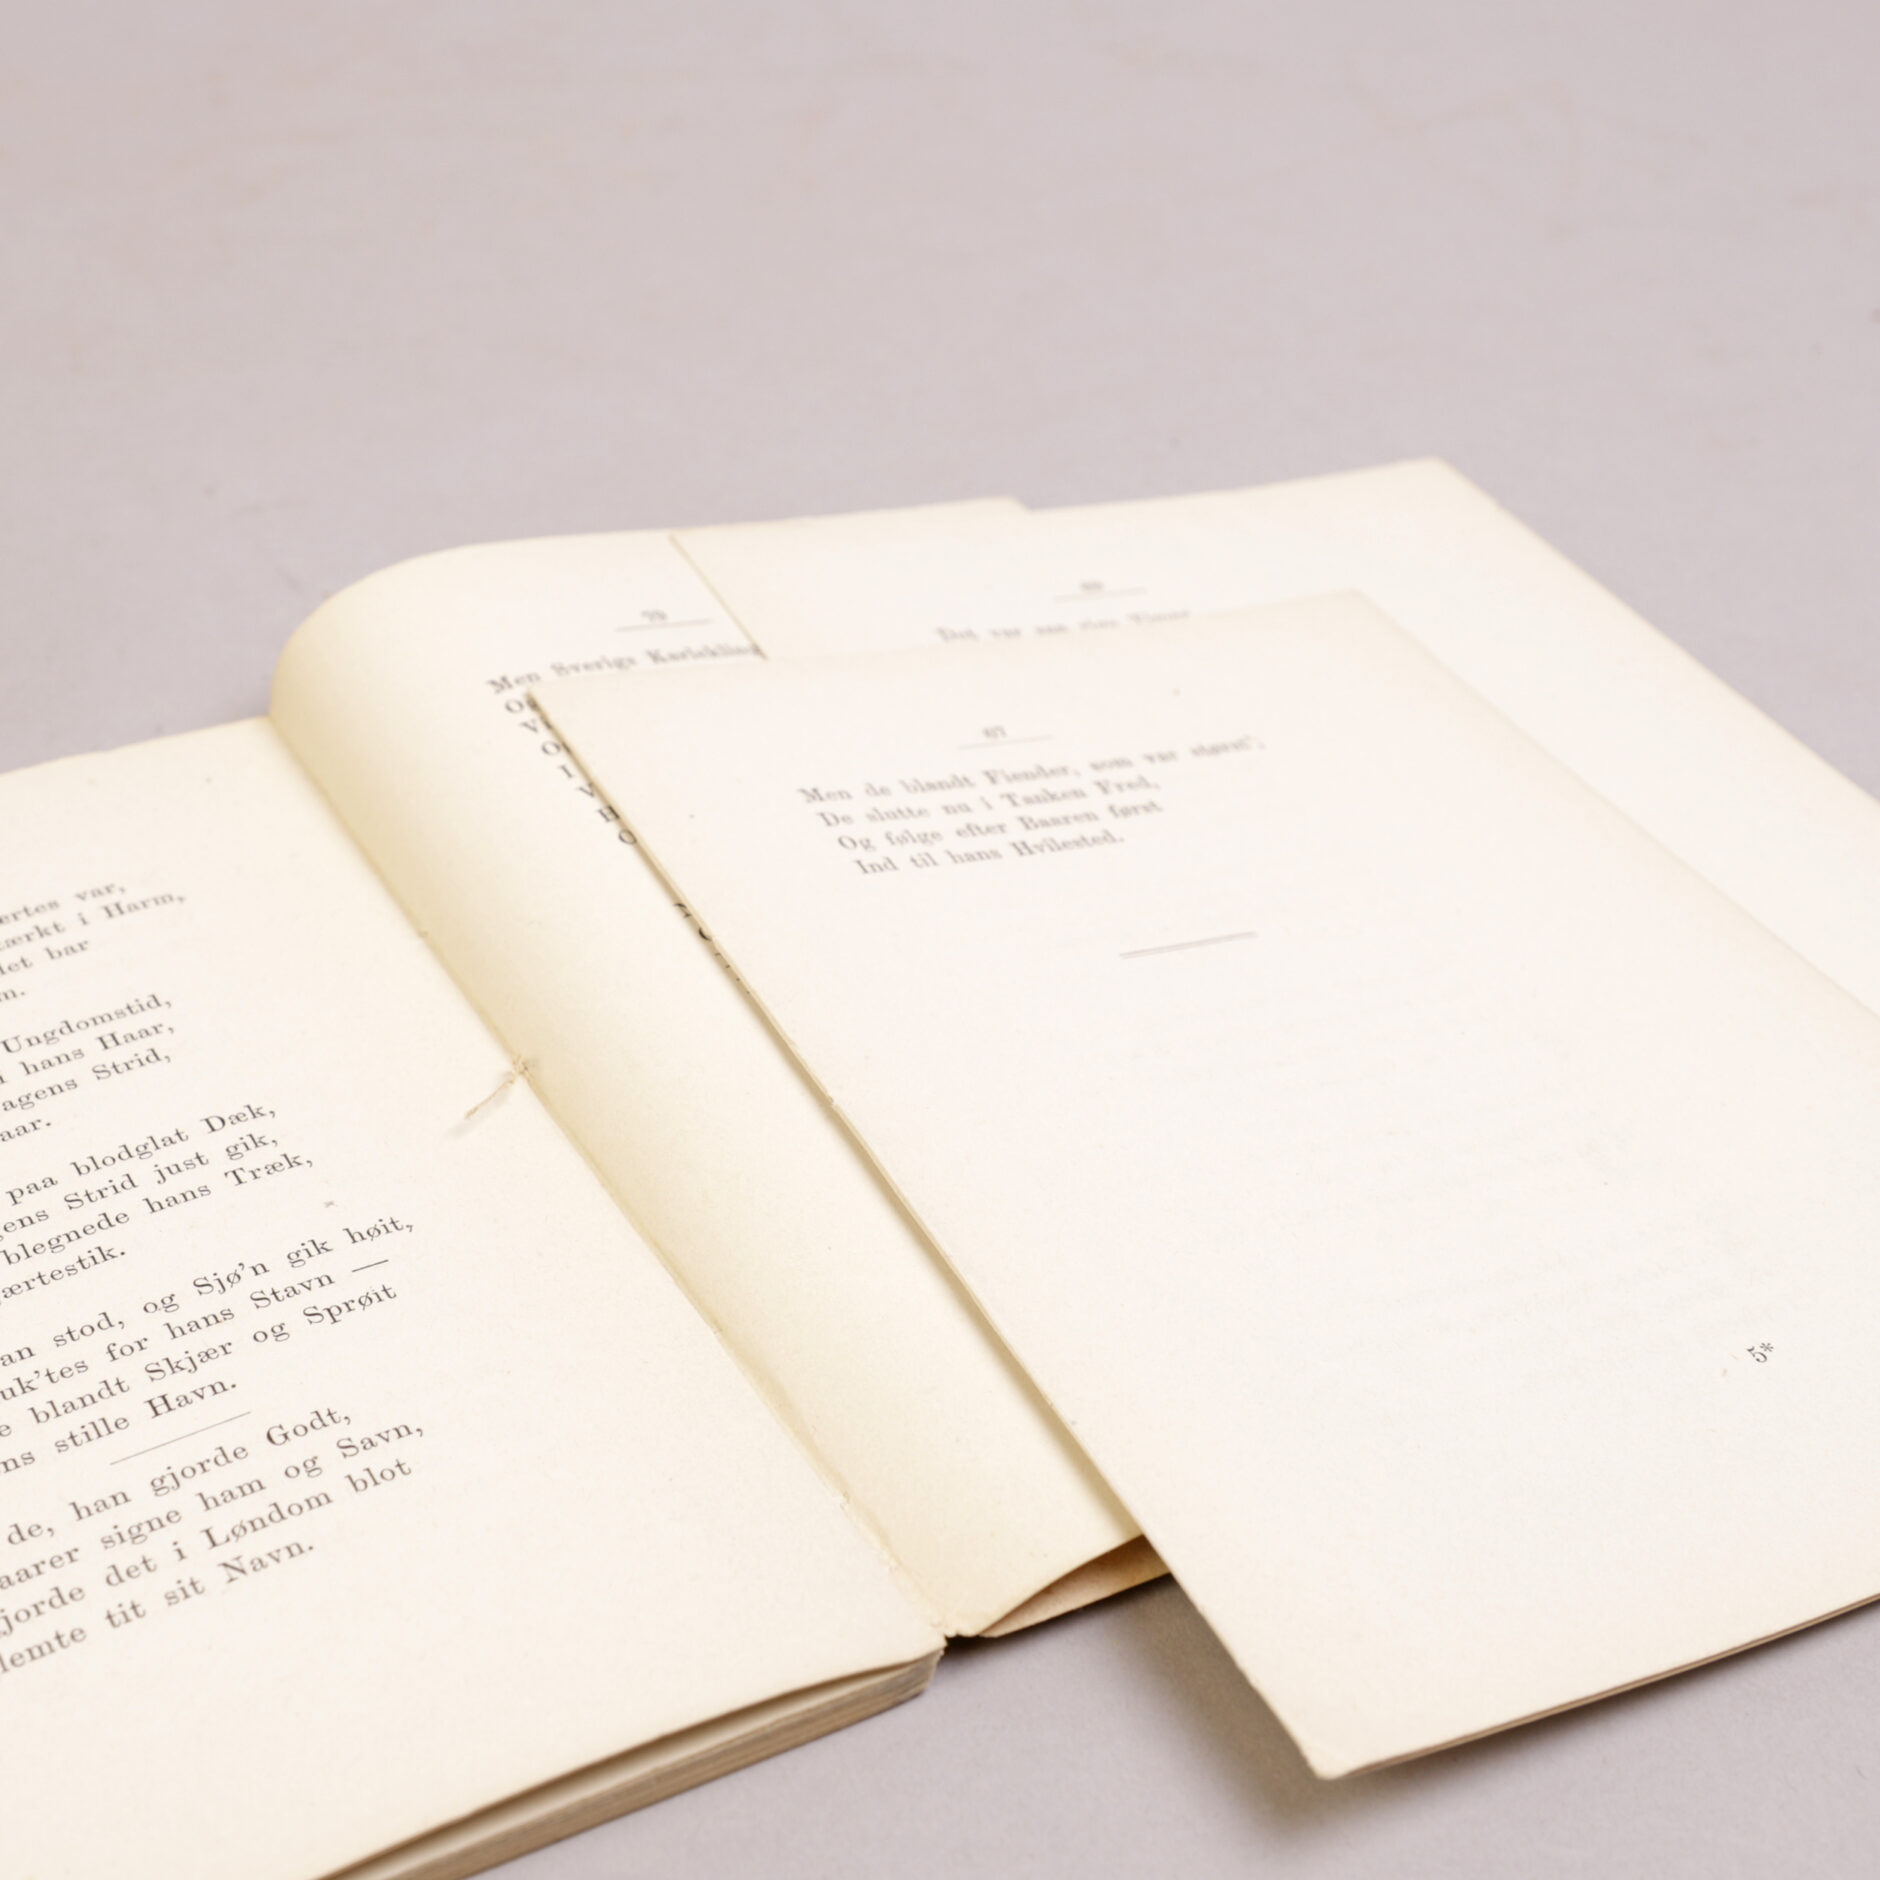 ertes var,
tærkt i Harm,
det bar
m.
Ungdomstid,
i hans Haar,
agens Strid,
aar.
paa blodglat Dæk,
gens Strid just gik,
blegnede hans Træk,
jærtestik.
an stod, og Sjø'n gik høit,
uk'tes for hans Stavn —
e blandt Skjær og Sprøit
ns stille Havn.
de, han gjorde Godt,
aarer signe ham og Savn,
jorde det i Løndom blot
lemte tit sit Navn.
79
Men Sverigs
O
V
O
I
V
H
O
Det var
67
Men de blandt Fiender, som var størst',
De slutte nu i Tanken Fred,
Og følge efter Baaren først
Ind til hans Hvilested.
5*